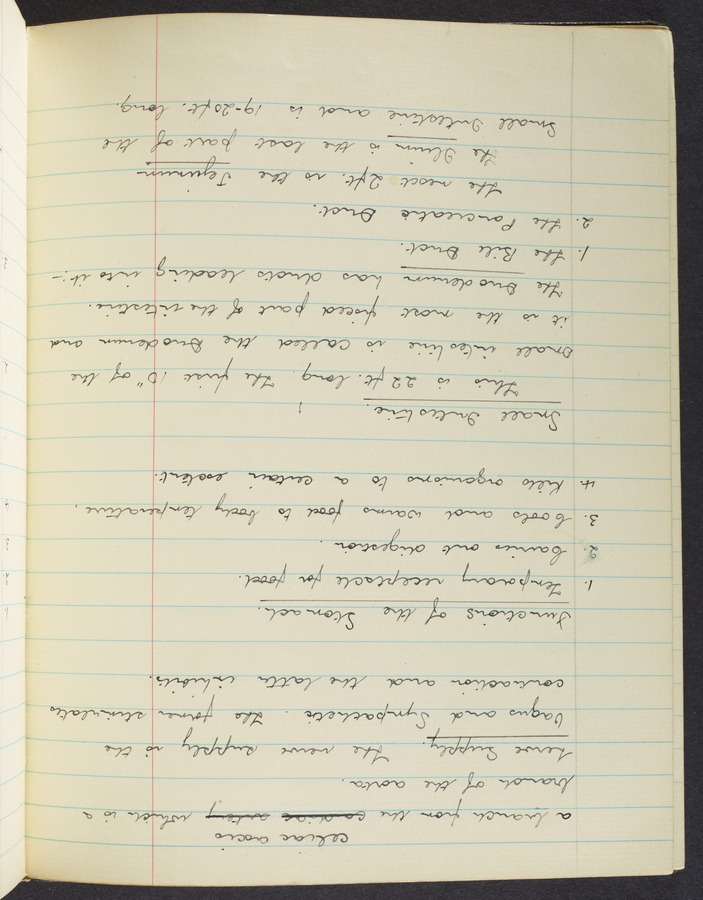 celiac axis
a branch from the cardiac artery which is a
branch of the aorta.
Nerve Supply. The nerve supply is the
Vagus and Sympathetic. The former stimulates
contraction and the latter inhibits.
Functions of the Stomach.
1. Temporary receptacle for food.
2. Carries out digestion.
3. Cools and warms food to body temperature.
4. Kills organisms to a certain extent.
Small Intestine.
This is 22 ft. long. The first 10" of the
small intestine is called the Duodenum and
it is the most fixed part of the intestine.
The Duodenum has ducts leading into it:-
1. The Bile Duct.
2. The Pancreatic Duct.
The next 2 ft. is the Jejunum
The Ileum is the last part of the
Small Intestine and is 19-20 ft. long.